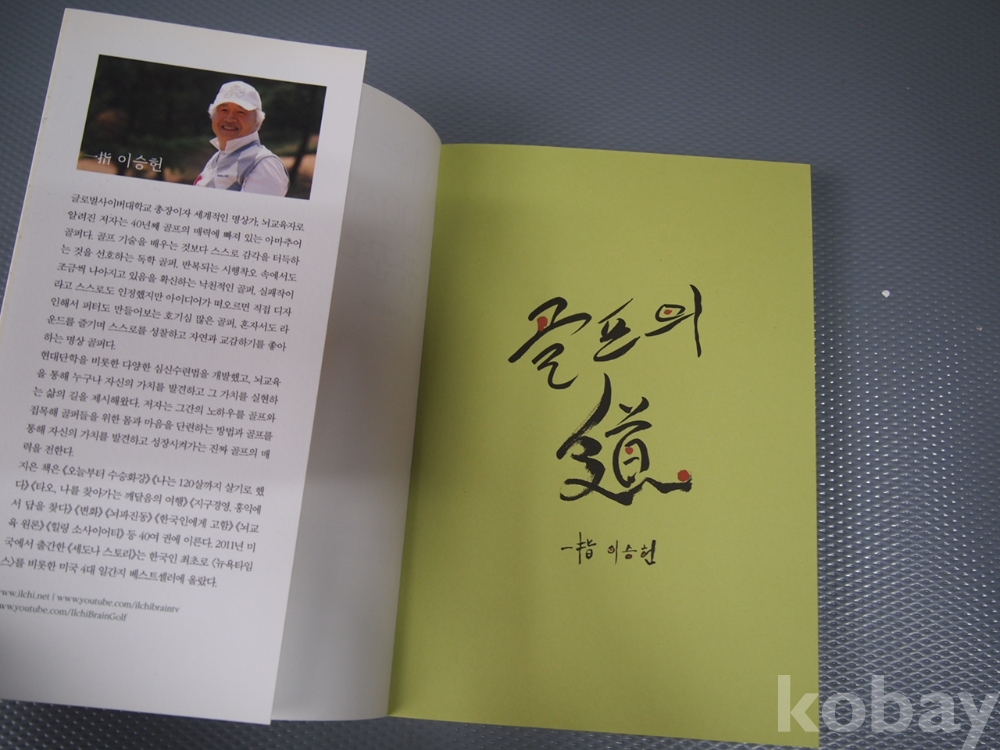 一指 이승헌
글로벌사이버대학교 총장이자 세계적인 명상가, 뇌교육자로
알려진 저자는 40년째 골프의 매력에 빠져 있는 아마추어
골퍼다. 골프 기술을 배우는 것보다 스스로 감각을 터득하
는 것을 선호하는 독학 골퍼, 반복되는 시행착오 속에서도
조금씩 나아지고 있음을 확신하는 낙천적인 골퍼, 실패작이
라고 스스로도 인정했지만 아이디어가 떠오르면 직접 디자
인해서 퍼터도 만들어보는 호기심 많은 골퍼, 혼자서도 라
운드를 즐기며 스스로를 성찰하고 자연과 교감하기를 좋아
하는 명상 골퍼다.
현대단학을 비롯한 다양한 심신수련법을 개발했고, 뇌교육
을 통해 누구나 자신의 가치를 발견하고 그 가치를 실현하
는 삶의 길을 제시해왔다. 저자는 그간의 노하우를 골프와
접목해 골퍼들을 위한 몸과 마음을 단련하는 방법과 골프를
통해 자신의 가치를 발견하고 성장시켜가는 진짜 골프의 매
력을 전한다.
지은 책은 《오늘부터 수승화강》《나는 120살까지 살기로 했
다》《타오, 나를 찾아가는 깨달음의 여행》《지구경영, 홍익에
서 답을 찾다》《변화》《뇌파진동》《한국인에게 고함》《뇌교
육 원론》《힐링 소사이어티》 등 40여 권에 이른다. 2011년 미
국에서 출간한 《세도나 스토리》는 한국인 최초로 〈뉴욕타임
스〉를 비롯한 미국 4대 일간지 베스트셀러에 올랐다.
www.ilchi.net | www.youtube.com/ilchibraintv
www.youtube.com/IlchiBrainGolf
골프의
道
一指 이승헌
kobay